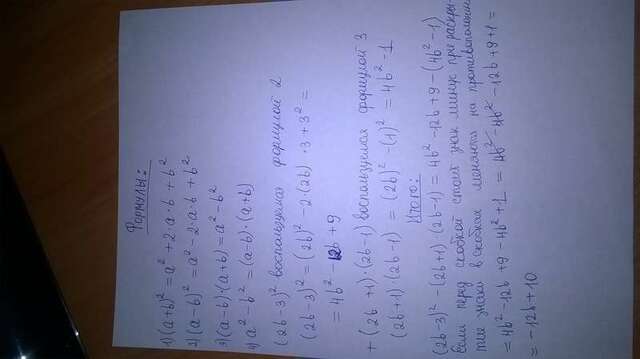 Формулы:
1) (a+b)² = a² + 2·a·b + b²
2) (a-b)² = a² - 2·a·b + b²
3) (a-b)·(a+b) = a² - b²
4) a² - b² = (a-b)·(a+b)
(2b-3)² воспользуемся формулой 2
(2b-3)² = (2b)² - 2(2b)·3 + 3² =
= 4b² - 12b + 9
+ (2b+1)·(2b-1) воспользуемся формулой 3
(2b+1)·(2b-1) = (2b)² - (1)² = 4b² - 1
Итого:
(2b-3)² - (2b+1)(2b-1) = 4b² - 12b + 9 - (4b² - 1)
Если перед скобкой стоит знак минус при раскры
тие знаки в скобках меняются на противоположн
= 4b² - 12b + 9 - 4b² + 1 = 4b² - 4b² - 12b + 9 + 1 =
= -12b + 10